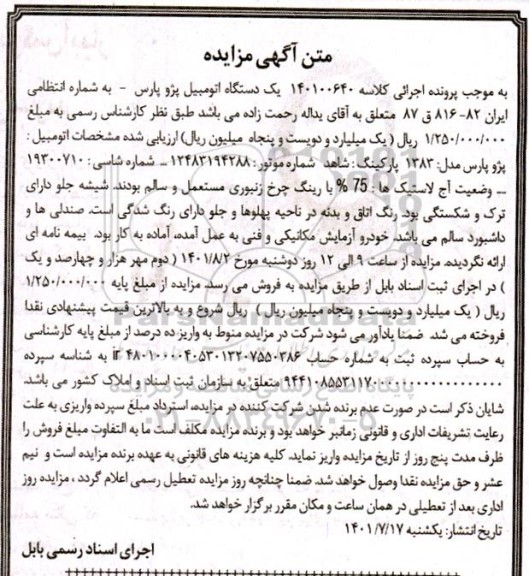 متن آگهی مزایده
به موجب پرونده اجرائی کلاسه ۱۴۰۱۰۰۶۴۰ یک دستگاه اتومبیل پژو پارس - به شماره انتظامی
ایران ۸۲- ۸۱۶ ق ۸۷ متعلق به آقای یداله رحمت زاده می باشد طبق نظر کارشناس رسمی به مبلغ
۱/۲۵۰/۰۰۰/۰۰۰ ریال ( یک میلیارد و دویست و پنجاه میلیون ریال) ارزیابی شده مشخصات اتومبیل :
پژو پارس مدل: ۱۳۸۳ پارکینگ: شاهد شماره موتور: ۱۲۴۸۳۱۹۴۲۸۸ – شماره شاسی: ۱۹۳۰۰۷۱۰
– وضعیت آج لاستیک ها : 75 % با رینگ چرخ زنبوری مستعمل و سالم بودند. شیشه جلو دارای
ترک و شکستگی بود. رنگ اتاق و بدنه در ناحیه پهلوها و جلو دارای رنگ شدگی است. صندلی ها و
داشبورد سالم می باشد. خودرو آزمایش مکانیکی و فنی به عمل آمده، آماده به کار بود. بیمه نامه ای
ارائه نگردیده. مزایده از ساعت ۹ الی ۱۲ روز دوشنبه مورخ ۱۴۰۱/۸/۲ ( دوم مهر هزار و چهارصد و یک
) در اجرای ثبت اسناد بابل از طریق مزایده به فروش می رسد. مزایده از مبلغ پایه ۱/۲۵۰/۰۰۰/۰۰۰
ریال ( یک میلیارد و دویست و پنجاه میلیون ریال ) ریال شروع و به بالاترین قیمت پیشنهادی نقدا
فروخته می شد. ضمنا یادآور می شود شرکت در مزایده منوط به واریز ده درصد از مبلغ پایه کارشناسی
به حساب سپرده ثبت به شماره حساب ir ۴۸۰۱۰۰۰۰۴۰۵۳۰۱۳۲۰۷۵۵۰۳۸۶ به شناسه سپرده
۹۴۴۱۰۸۵۵۳۱۱۷۰۰۰۰۰۰۰۰۰۰۰۰۰۰ متعلق به سازمان ثبت اسناد و املاک کشور می باشد.
شایان ذکر است در صورت عدم برنده شدن شرکت کننده در مزایده، استرداد مبلغ سپرده واریزی به علت
رعایت تشریفات اداری و قانونی زمانبر خواهد بود و برنده مزایده مکلف است ما به التفاوت مبلغ فروش را
ظرف مدت پنج روز از تاریخ مزایده واریز نماید. کلیه هزینه های قانونی به عهده برنده مزایده است و نیم
عشر و حق مزایده نقدا وصول خواهد شد. ضمنا چنانچه روز مزایده تعطیل رسمی اعلام گردد ، مزایده روز
اداری بعد از تعطیلی در همان ساعت و مکان مقرر برگزار خواهد شد.
تاریخ انتشار: یکشنبه ۱۴۰۱/۷/۱۷
اجرای اسناد رسمی بابل